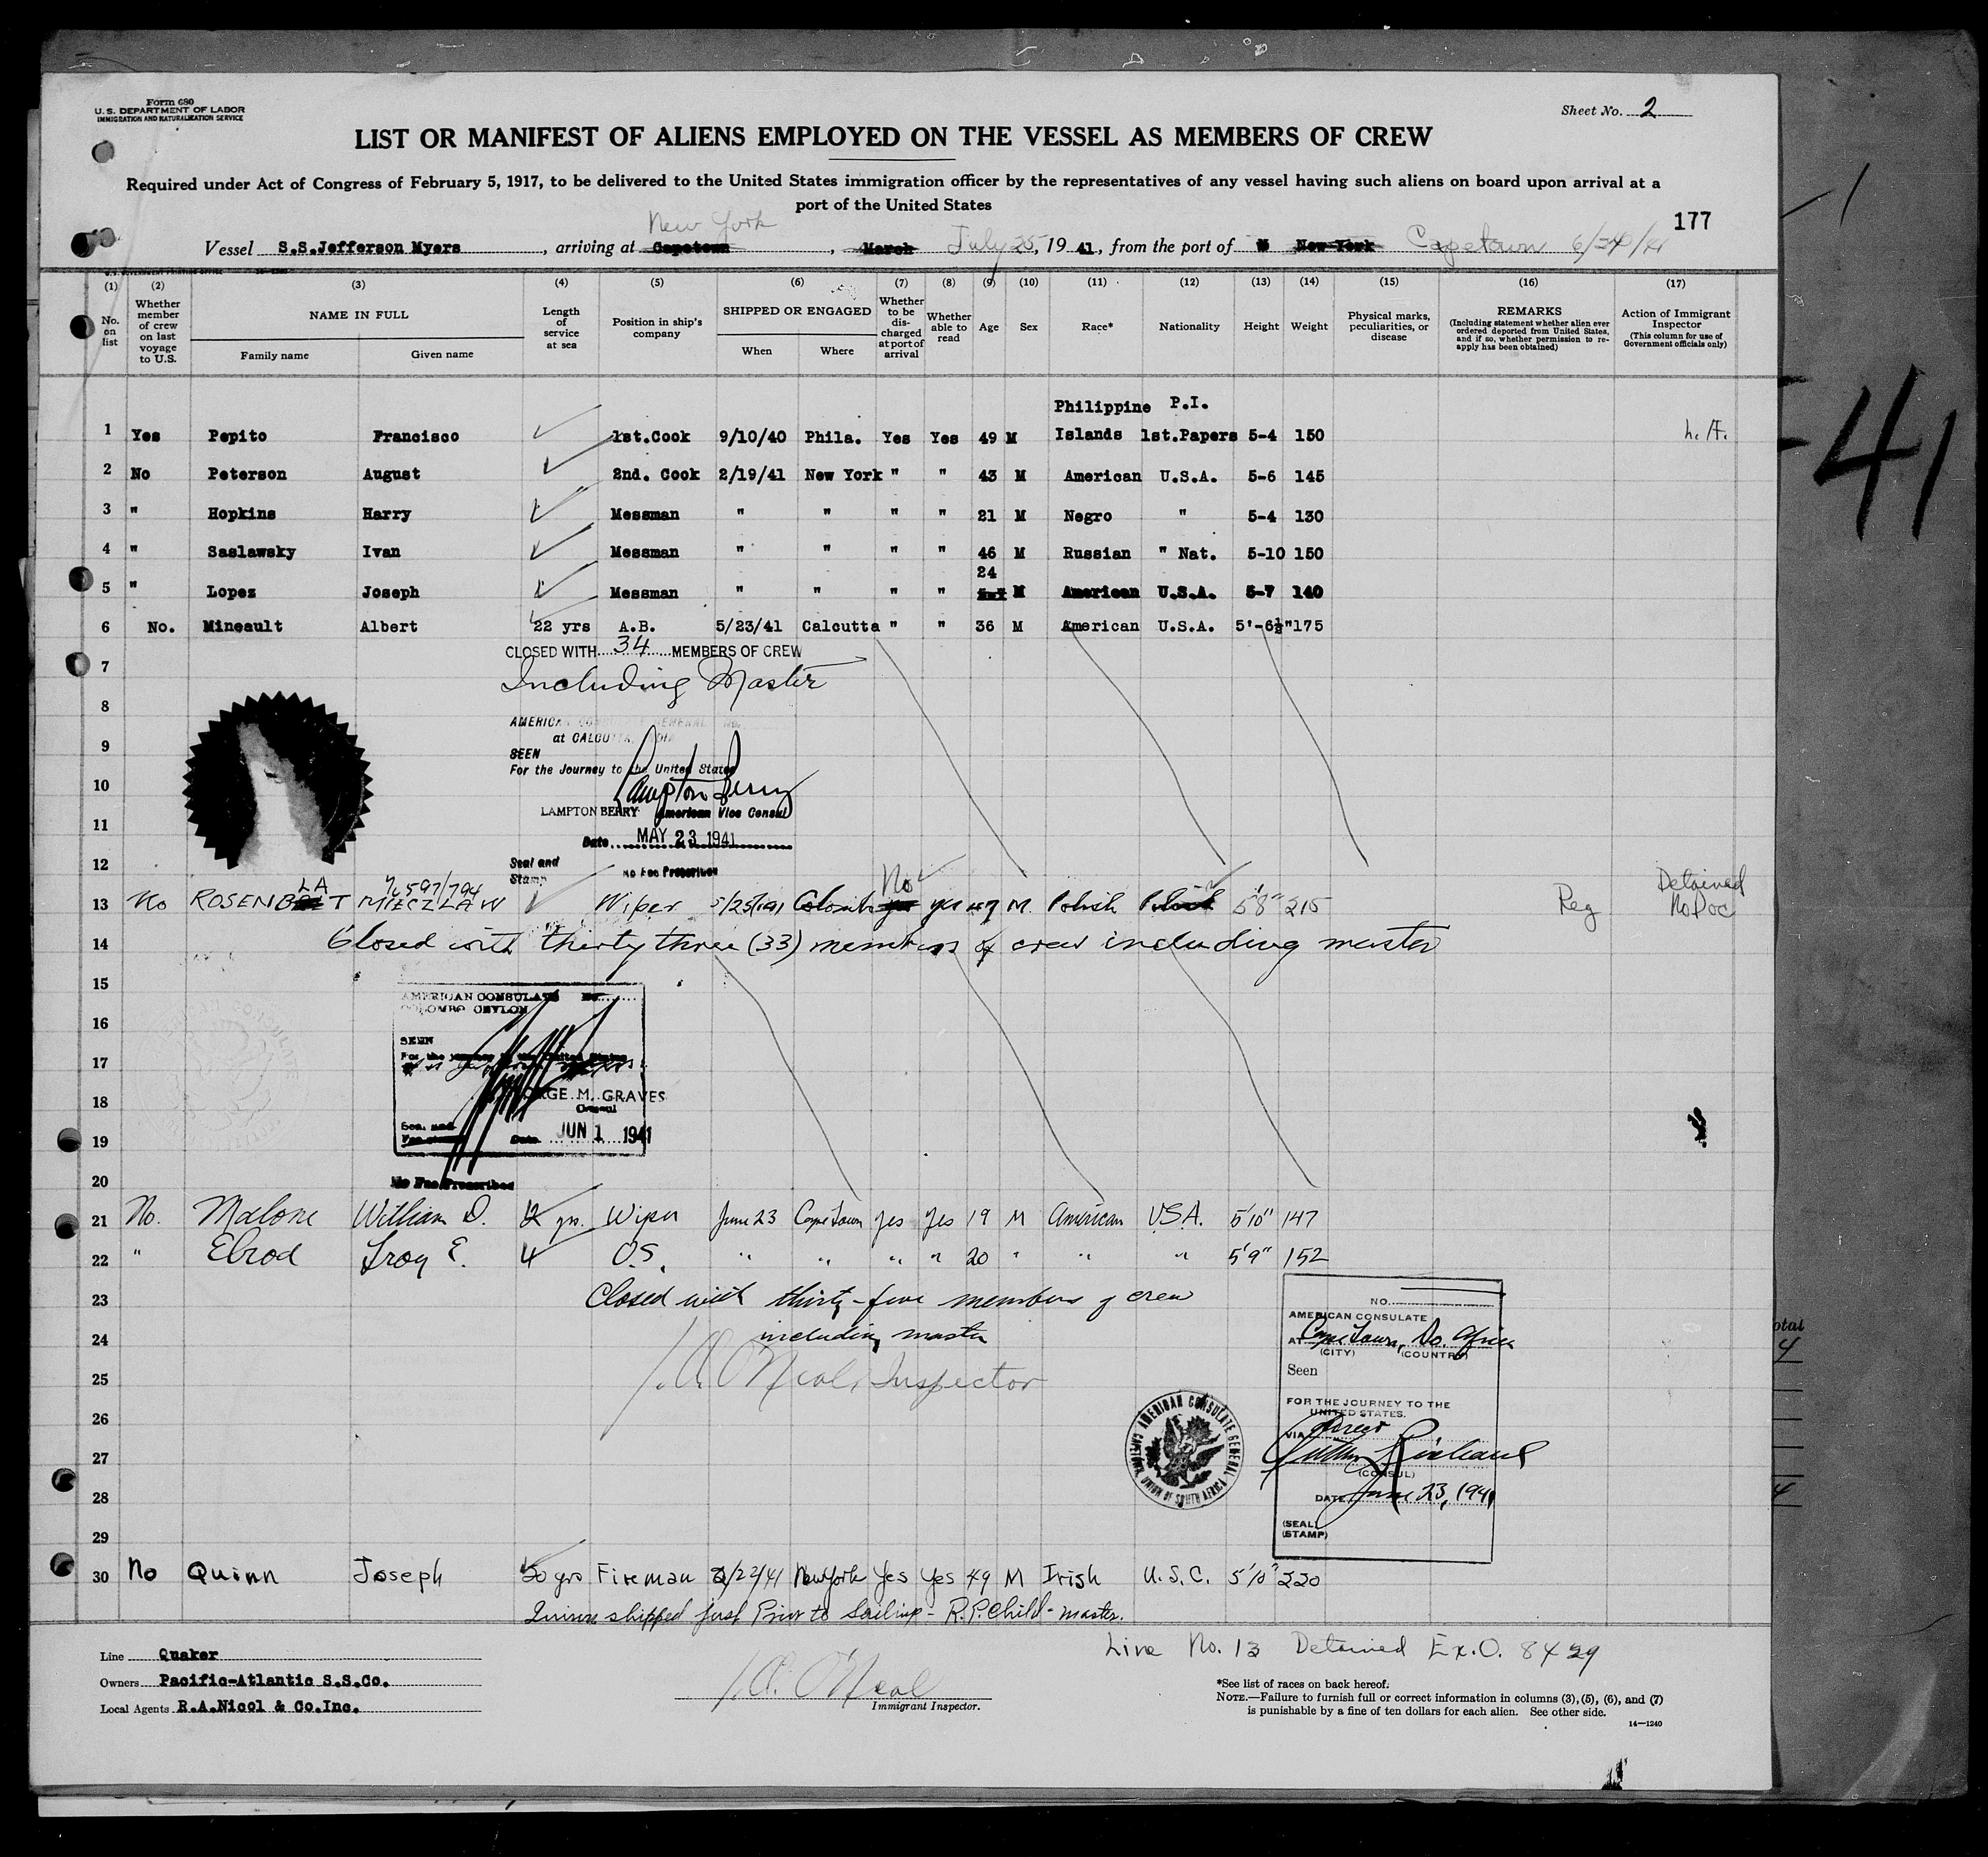 Form 680
U. S. DEPARTMENT OF LABOR
IMMIGRATION AND NATURALIZATION SERVICE
Sheet No. 2
LIST OR MANIFEST OF ALIENS EMPLOYED ON THE VESSEL AS MEMBERS OF CREW
Required under Act of Congress of February 5, 1917, to be delivered to the United States immigration officer by the representatives of any vessel having such aliens on board upon arrival at a
port of the United States
177
New York
Vessel S.S.Jefferson Myers, arriving at Capetown, March July 25, 19 41, from the port of New York Capetown 6/24/41
(1) (2) (3) (4) (5) (6) (7) (8) (9) (10) (11) (12) (13) (14) (15) (16) (17)
No. on list
Whether member of crew on last voyage to U.S.
NAME IN FULL
Family name Given name
Length of service at sea
Position in ship's company
SHIPPED OR ENGAGED
When Where
Whether to be discharged at port of arrival
Whether able to read
Age
Sex
Race*
Nationality
Height
Weight
Physical marks, peculiarities, or disease
REMARKS
(Including statement whether alien ever ordered deported from United States, and if so, whether permission to reapply has been obtained)
Action of Immigrant Inspector
(This column for use of Government officials only)
Philippine P.I.
1 Yes Pepito Francisco 1st.Cook 9/10/40 Phila. Yes Yes 49 M Islands 1st.Papers 5-4 150
2 No Peterson August 2nd. Cook 2/19/41 New York " " 43 M American U.S.A. 5-6 145
3 " Hopkins Harry Messman " " " " 21 M Negro " 5-4 130
4 " Saslawsky Ivan Messman " " " " 46 M Russian " Nat. 5-10 150
24
5 " Lopez Joseph Messman " " " " M American U.S.A. 5-7 140
6 No. Mineault Albert 22 yrs A.B. 5/23/41 Calcutta " " 36 M American U.S.A. 5'-6½" 175
CLOSED WITH 34 MEMBERS OF CREW
7 Including Master
8
AMERICAN CONSULATE GENERAL No.
at CALCUTTA, INDIA
9
SEEN
For the Journey to the United States
10
Lampton Berry
LAMPTON BERRY American Vice Consul
11
Date MAY 23 1941
12
Seal and Stamp
No Fee Prescribed
LA No
Detained
13 No ROSENB T MIECZLAW Wiper 5/25/41 Colombo yes M Polish Polish 5'8" 215 Reg No Doc
14 Closed with thirty three (33) members of crew including master
15
AMERICAN CONSULATE No.
COLOMBO CEYLON
16
SEEN
17
For the journey to the United States
18
GEORGE M. GRAVES
Consul
19
Date JUN 1 1941
20
No Fee Prescribed
21 No. Malone William D. yrs. Wiper June 23 Cape Town Yes Yes 19 M American USA. 5'10" 147
22 " Elrod Troy E. 4 O.S. " " " " 20 " " " 5'9" 152
23 Closed with thirty-five members of crew
24 including master
25 J.A. O'Neal, Inspector
26
27
28
29
NO.
AMERICAN CONSULATE
AT Cape Town, So. Africa
(CITY) (COUNTRY)
Seen
FOR THE JOURNEY TO THE
UNITED STATES.
VIA Direct
(CONSUL)
DATE June 23, 1941
(SEAL)
(STAMP)
AMERICAN CONSULATE GENERAL
CAPETOWN, UNION OF SOUTH AFRICA
30 No Quinn Joseph 20 yrs Fireman 2/22/41 New York Yes Yes 49 M Irish U.S.C. 5'10" 220
Quinn shipped just Prior to Sailing - R.P. Child - master.
Line No. 13 Detained Ex.O. 8429
Line Quaker
Owners Pacific-Atlantic S.S.Co.
Local Agents R.A.Nicol & Co.Inc.
J.A. O'Neal
Immigrant Inspector.
*See list of races on back hereof.
NOTE.—Failure to furnish full or correct information in columns (3), (5), (6), and (7)
is punishable by a fine of ten dollars for each alien. See other side.
14—1240
41
otal
4
4